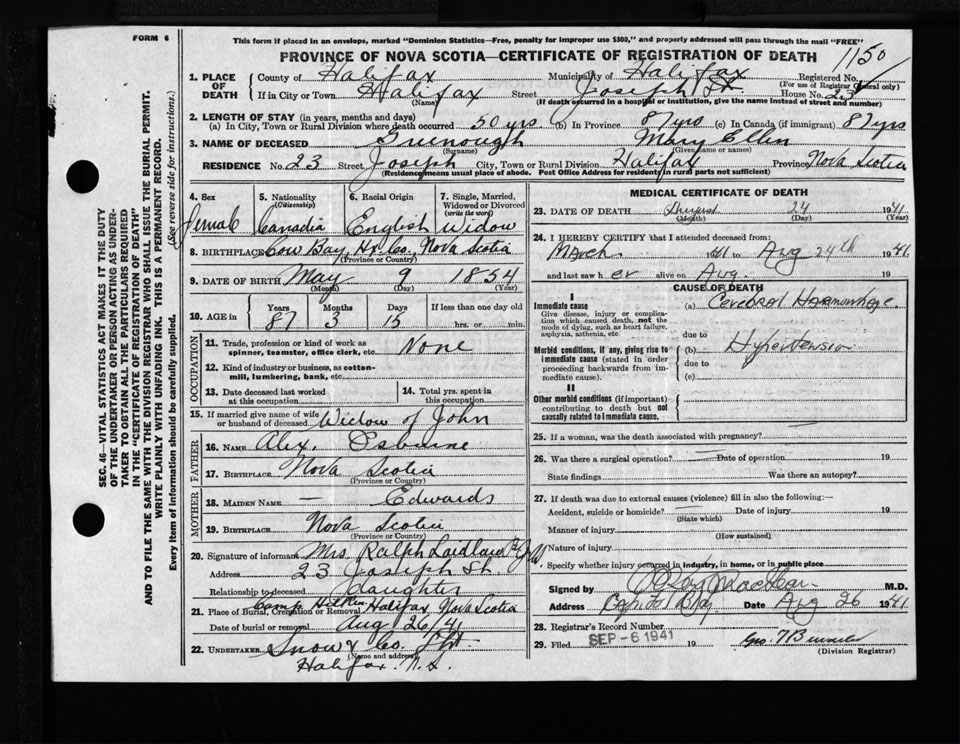 FORM 6
This form if placed in an envelope, marked "Dominion Statistics—Free, penalty for improper use $300," and properly addressed will pass through the mail "FREE"
PROVINCE OF NOVA SCOTIA—CERTIFICATE OF REGISTRATION OF DEATH
1150
1. PLACE OF DEATH
County of Halifax Municipality of Halifax Registered No.
(For use of Registrar General only)
If in City or Town Halifax Street Joseph St. House No. 23
(Name) (If death occurred in a hospital or institution, give the name instead of street and number)
2. LENGTH OF STAY (in years, months and days)
(a) In City, Town or Rural Division where death occurred 50 yrs. (b) In Province 87 yrs (c) In Canada (if immigrant) 87 yrs
3. NAME OF DECEASED Greenough Mary Ellen
(Surname) (Given name or names)
RESIDENCE No. 23 Street Joseph City, Town or Rural Division Halifax Province Nova Scotia
(Residence means usual place of abode. Post Office Address for residents in rural parts not sufficient)
4. Sex 5. Nationality (Citizenship) 6. Racial Origin 7. Single, Married, Widowed or Divorced (write the word)
Female Canadia English Widow
8. BIRTHPLACE Cow Bay, Hx. Co. Nova Scotia
(Province or Country)
9. DATE OF BIRTH May 9 1854
(Month) (Day) (Year)
10. AGE in Years Months Days If less than one day old
87 3 15 hrs. or min.
OCCUPATION
11. Trade, profession or kind of work as spinner, teamster, office clerk, etc. None
12. Kind of industry or business, as cotton-mill, lumbering, bank, etc.
13. Date deceased last worked at this occupation
14. Total yrs. spent in this occupation
15. If married give name of wife or husband of deceased Widow of John
FATHER
16. NAME Alex. Osburne
17. BIRTHPLACE Nova Scotia
(Province or Country)
MOTHER
18. MAIDEN NAME — Edwards
19. BIRTHPLACE Nova Scotia
(Province or Country)
20. Signature of informant Mrs. Ralph Laidlaw
Address 23 Joseph St.
Relationship to deceased daughter
21. Place of Burial, Cremation or Removal Camp Hill Halifax Nova Scotia
Date of burial or removal Aug 26/41
22. UNDERTAKER Snow & Co. Ltd.
(Name and address)
Halifax. N.S.
MEDICAL CERTIFICATE OF DEATH
23. DATE OF DEATH August 24 1941
(Month) (Day) (Year)
24. I HEREBY CERTIFY that I attended deceased from:
March 1941 to Aug 24th 1941
and last saw her alive on Aug. 19
CAUSE OF DEATH
I
Immediate cause
Give disease, injury or complication which caused death, not the mode of dying, such as heart failure, asphyxia, asthenia, etc
(a) Cerebral Haemorrhage
due to
Morbid conditions, if any, giving rise to immediate cause (stated in order proceeding backwards from immediate cause).
(b) Hypertension
due to
(c)
II
Other morbid conditions (if important) contributing to death but not causally related to immediate cause.
25. If a woman, was the death associated with pregnancy?
26. Was there a surgical operation? — Date of operation 19
State findings Was there an autopsy?
27. If death was due to external causes (violence) fill in also the following:—
Accident, suicide or homicide? — Date of injury 19
(State which)
Manner of injury
(How sustained)
Nature of injury
Specify whether injury occurred in industry, in home, or in public place
Signed by M.D.
Address Capitol Bldg Date Aug 26 1941
28. Registrar's Record Number
29. Filed SEP - 6 1941 19
(Division Registrar)
SEC. 46—VITAL STATISTICS ACT MAKES IT THE DUTY
OF THE UNDERTAKER OR PERSON ACTING AS UNDER-
TAKER TO OBTAIN ALL THE PARTICULARS REQUIRED
IN THE "CERTIFICATE OF REGISTRATION OF DEATH"
AND TO FILE THE SAME WITH THE DIVISION REGISTRAR WHO SHALL ISSUE THE BURIAL PERMIT.
WRITE PLAINLY WITH UNFADING INK. THIS IS A PERMANENT RECORD.
Every item of information should be carefully supplied. (See reverse side for instructions.)